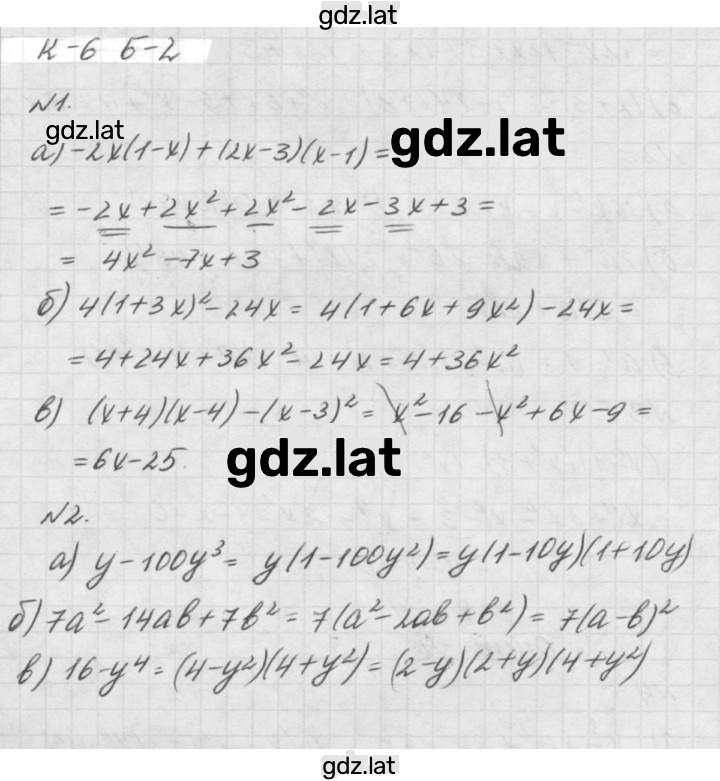 gdz.lat
К-6 Б-2
№1.
gdz.lat
а) -2x(1-x)+(2x-3)(x-1)=
gdz.lat
= -2x+2x²+2x²-2x-3x+3=
= 4x²-7x+3
б) 4(1+3x)²-24x= 4(1+6x+9x²)-24x=
=4+24x+36x²-24x=4+36x²
в) (x+4)(x-4)-(x-3)²= x²-16-x²+6x-9=
=6x-25.
gdz.lat
№2.
а) y-100y³= y(1-100y²)=y(1-10y)(1+10y)
б) 7a²-14ab+7b²=7(a²-2ab+b²)=7(a-b)²
в) 16-y⁴=(4-y²)(4+y²)=(2-y)(2+y)(4+y²)
gdz.lat